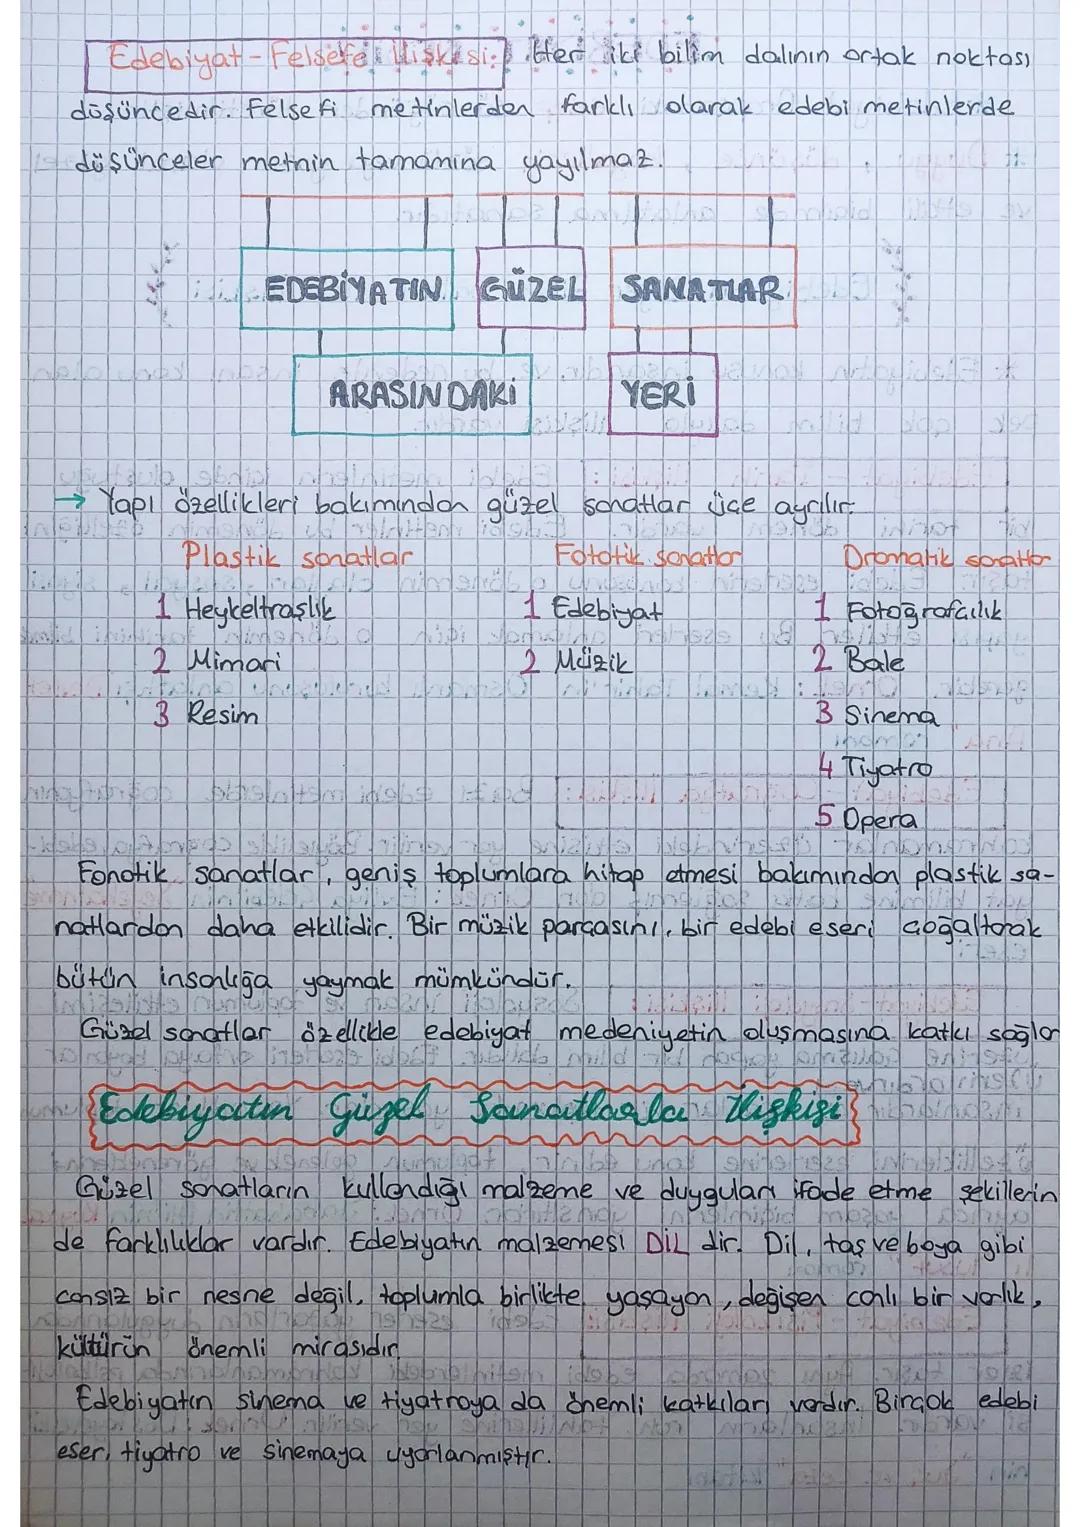 Edebiyat - Felsefe İlişkisi: Her iki bilim dalının ortak noktası
düşüncedir. Felsefi metinlerden farklı olarak edebi metinlerde
düşünceler metnin tamamına yayılmaz.
EDEBİYATIN GÜZEL SANATLAR
ARASINDAKİ YERİ
→ Yapı özellikleri bakımından güzel sanatlar üçe ayrılır.
Plastik sanatlar Fototik sanatlar Dramatik sanatlar
1 Heykeltraşlık 1 Edebiyat 1 Fotoğrafcılık
2 Mimari 2 Müzik 2 Bale
3 Resim 3 Sinema
4 Tiyatro
5 Opera
Fonotik sanatlar, geniş toplumlara hitap etmesi bakımından plastik sa-
natlardan daha etkilidir. Bir müzik parçasını, bir edebi eseri çoğaltarak
bütün insanlığa yaymak mümkündür.
Güzel sanatlar özellikle edebiyat medeniyetin oluşmasına katkı sağlar
Edebiyatın Güzel Sanatlarla İlişkisi
Güzel sanatların kullandığı malzeme ve duyguları ifade etme şekillerin
de farklılıklar vardır. Edebiyatın malzemesi DİL dir. Dil, taş ve boya gibi
cansız bir nesne değil, toplumla birlikte yaşayan, değişen canlı bir varlık,
kültürün önemli mirasıdır.
Edebiyatın sinema ve tiyatroya da önemli katkıları vardır. Birçok edebi
eser, tiyatro ve sinemaya uyarlanmıştır.